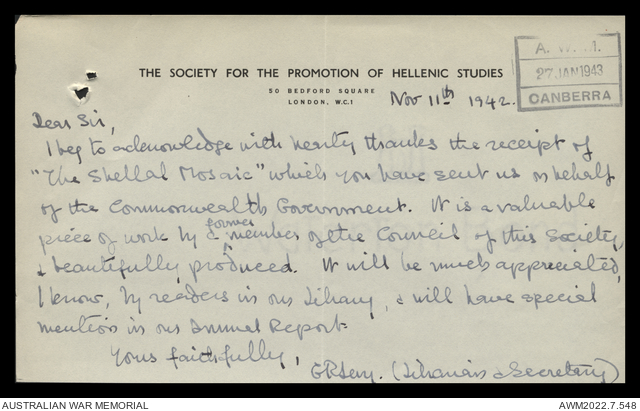 THE SOCIETY FOR THE PROMOTION OF HELLENIC STUDIES
50 BEDFORD SQUARE
LONDON, W.C.1
A. W. M.
27 JAN 1943
CANBERRA
Nov 11th 1942.
Dear Sir,
I beg to acknowledge with hearty thanks the receipt of
"The Shellal Mosaic" which you have sent us on behalf
of the Commonwealth Government. It is a valuable
piece of work by a former member of the Council of this Society,
& beautifully produced. It will be much appreciated,
I know, by readers in our Library, & will have special
mention in our Annual Report.
Yours faithfully,
(Librarian & Secretary)
AUSTRALIAN WAR MEMORIAL
AWM2022.7.548